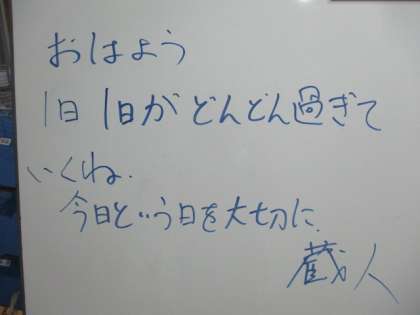 おはよう
1日1日がどんどん過ぎて
いくね.
今日という日を大切に.
蔵人